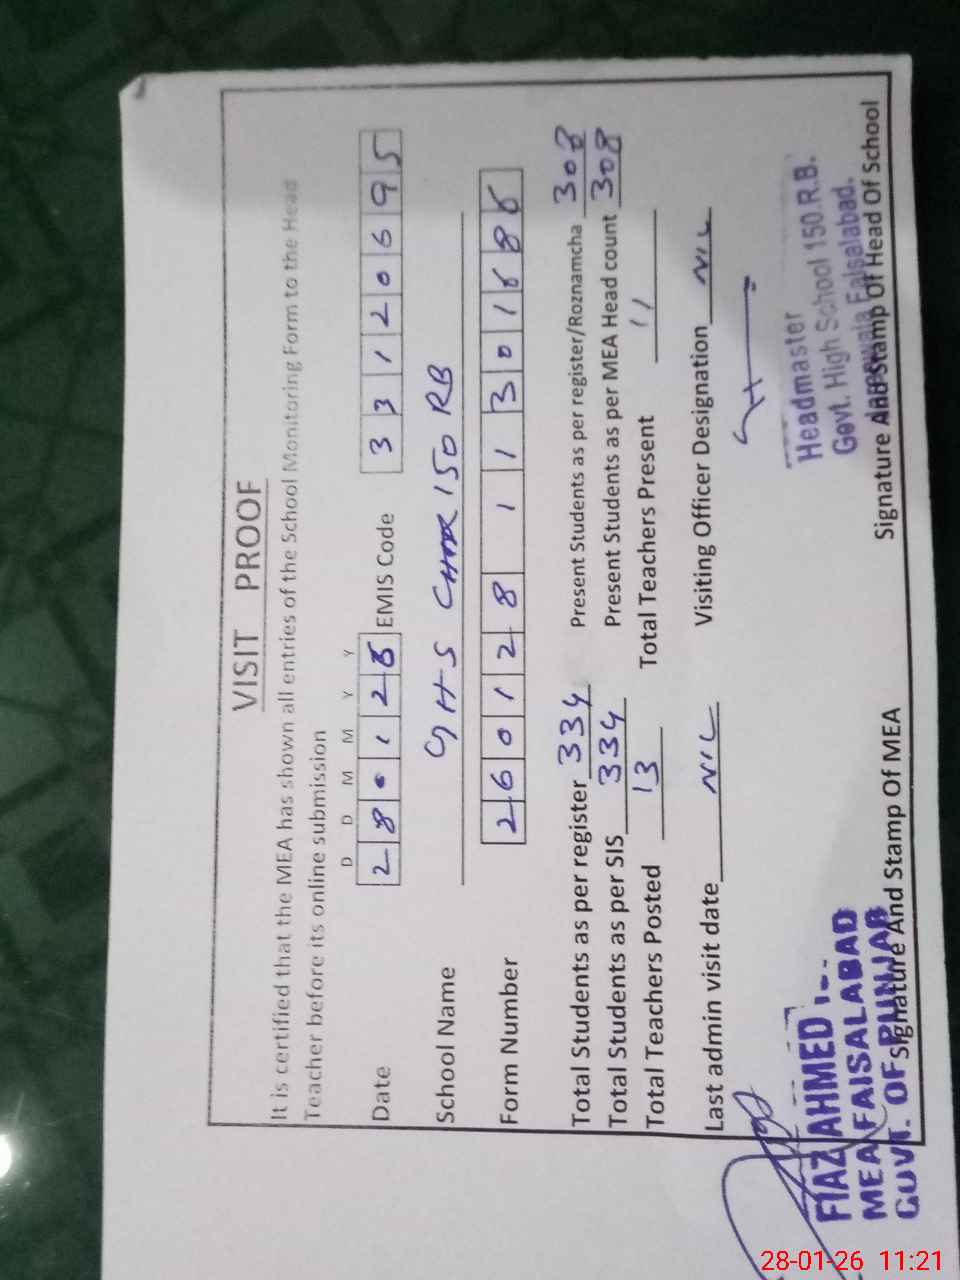 VISIT PROOF
It is certified that the MEA has shown all entries of the School Monitoring Form to the Head
Teacher before its online submission
D D M M Y Y
Date 28 01 26 EMIS Code 33120695
School Name GHS Chak 150 RB
Form Number 260128 1130186
Total Students as per register 334 Present Students as per register/Roznamcha 308
Total Students as per SIS 334 Present Students as per MEA Head count 308
Total Teachers Posted 13 Total Teachers Present 11
Last admin visit date NIL Visiting Officer Designation NIL
FIAZ AHMED
MEA FAISALABAD
GOVT. OF PUNJAB
Signature And Stamp Of MEA
Headmaster
Govt. High School 150 R.B.
Faisalabad.
Signature And Stamp Of Head Of School
28-01-26 11:21